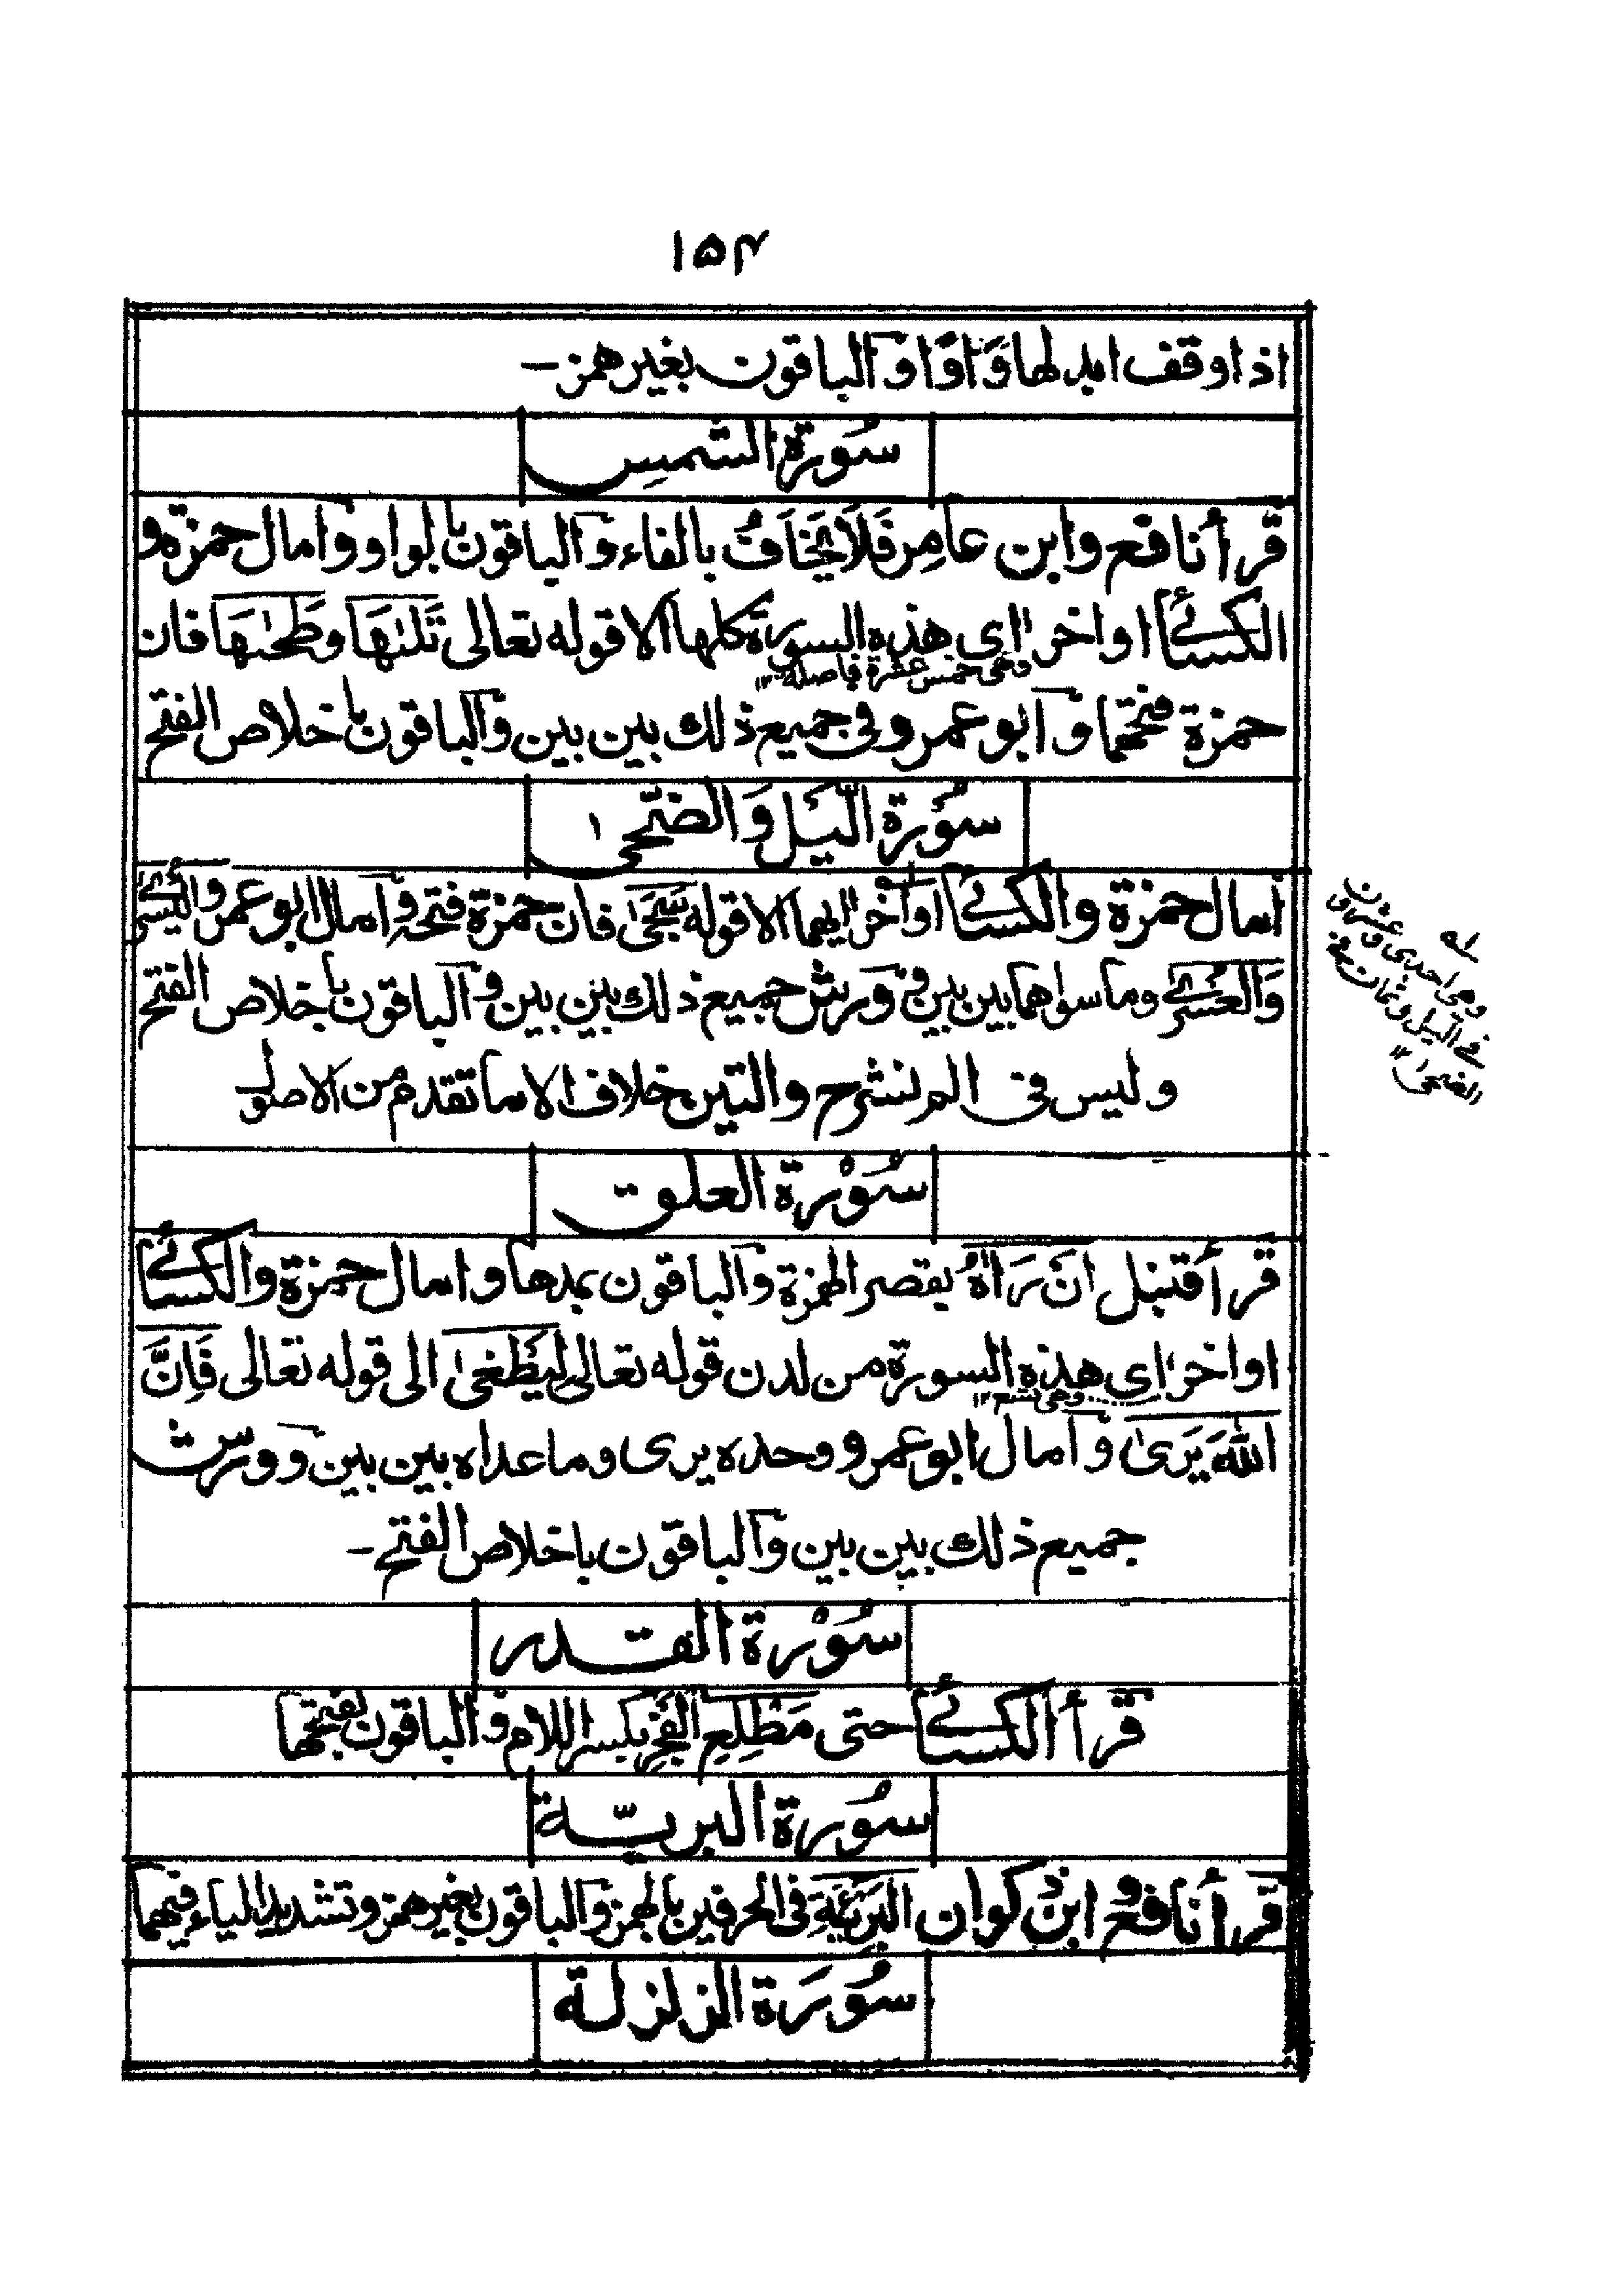 ١٥٤
اذا وقف ابدلها وَاوًا والباقون بغير همز -
سُورة الشمسِ
قرأ نافع وابن عامر فَلَا يَخَافُ بالفاء والباقون بالواو وامال حمزة و
الكسائے اواخر اٰى هذه السورة كلها الا قوله تعالى تَلٰىهَا وطَحٰىهَا فان
وهى خمس عشرة فاصلة ١٢
حمزة فتحهما وابو عمرو فى جميع ذلك بين بين والباقون باخلاص الفتح
سُوْرة الَّيْلِ وَالضُّحٰى
امال حمزة والكسائے اواخر اٰيهما الا قوله سَجٰى فان حمزة فتحه وامال ابو عمرو لليسرى
وَالعُسْرٰى وما سواهما بين بين وورش جميع ذلك بين بين والباقون باخلاص الفتح
وليس فى الم نشرح والتين خلاف الا ما تقدم من الاصول
سُوْرة العلق
قرأ قنبل اَنْ رَاٰهُ بقصر الهمزة والباقون بمدها وامال حمزة والكسائے
اواخر اٰى هذه السورة من لدن قوله تعالى لَيَطْغٰى الى قوله تعالى بِاَنَّ
وهى تسع ١٢
اللّٰهَ يَرٰى وامال ابو عمرو وحده يرى وما عداه بين بين وورش
جميع ذلك بين بين والباقون باخلاص الفتح -
سُوْرة القدر
قرأ الكسائے حتى مَطْلِعِ الْفَجْرِ بكسر اللام والباقون بفتحها
سُورة البريّة
قرأ نافع وابن ذكوان البَرِيْئَةِ فى الحرفين بالهمز والباقون بغير همز وتشديد الياء فيهما
سُورَة الزلزلة
له
وهى احدى وعشرون
فى الليل وثمان فى
الضحى ١٢